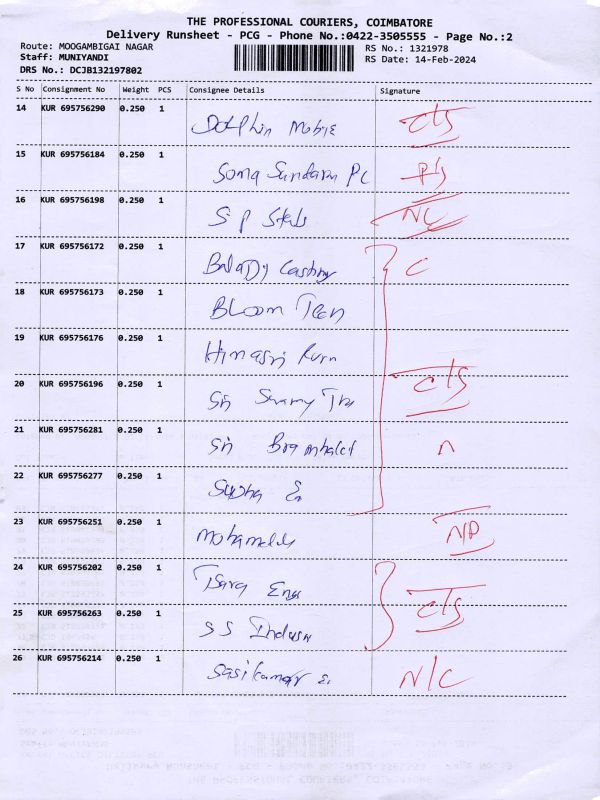 THE PROFESSIONAL COURIERS, COIMBATORE
Delivery Runsheet - PCG - Phone No.:0422-3505555 - Page No.:2
Route: MOOGAMBIGAI NAGAR RS No.: 1321978
Staff: MUNIYANDI RS Date: 14-Feb-2024
DRS No.: DCJB132197802
S No Consignment No Weight PCS Consignee Details Signature
14 KUR 695756290 0.250 1 Dolphin Mobile cts
15 KUR 695756184 0.250 1 Soma Sundaram PC
16 KUR 695756198 0.250 1 S P NC
17 KUR 695756172 0.250 1 Balaji C
18 KUR 695756173 0.250 1 Bloom
19 KUR 695756176 0.250 1 Himasri
20 KUR 695756196 0.250 1 Sri cts
21 KUR 695756281 0.250 1 Sri n
22 KUR 695756277 0.250 1
23 KUR 695756251 0.250 1 NP
24 KUR 695756202 0.250 1
25 KUR 695756263 0.250 1 SS cts
26 KUR 695756214 0.250 1 Sasikumar N/C